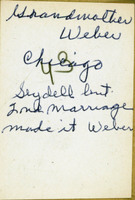 Grandmother
Weber
Chicago
43
Seydell but
2nd marriage
made it Weber